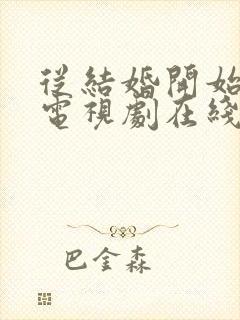 从結婚開始
電視劇在綫
巴金森